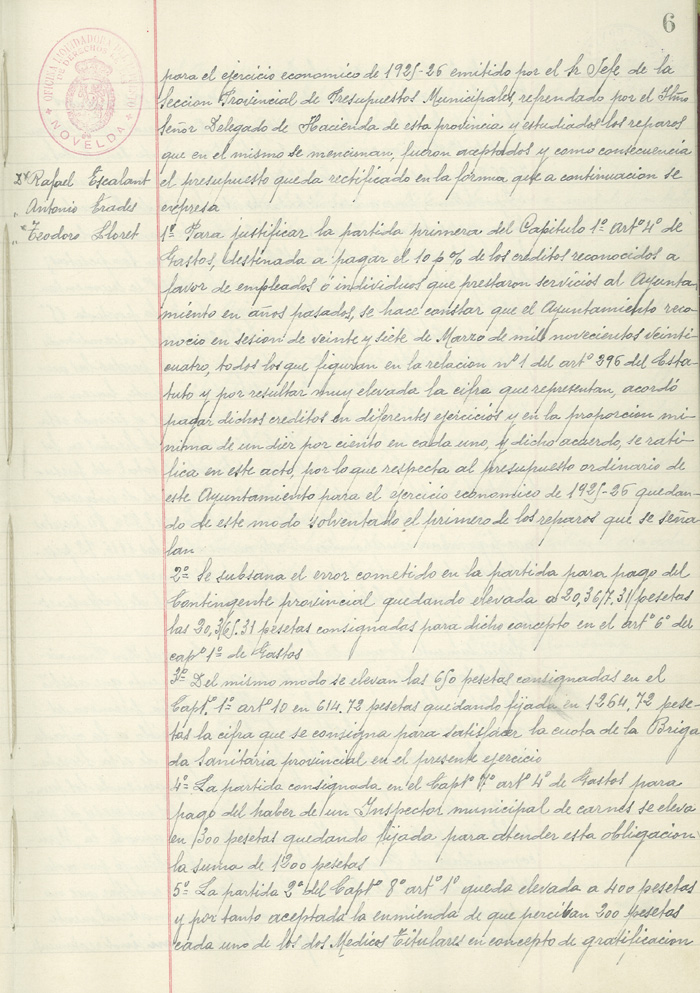 6
OFICINA LIQUIDADORA
DE DERECHOS
NOVELDA
para el ejercicio economico de 1925-26 emitido por el Sr Jefe de la
Seccion Provincial de Presupuestos Municipales, refrendado por el Iltmo
Señor Delegado de Hacienda de esta provincia y estudiados los reparos
que en el mismo se mencionan, fueron aceptados y como consecuencia
Dn Rafael Escalant
el presupuesto queda rectificado en la forma que a continuacion se
" Antonio Erades
expresa
" Teodoro Lloret
1º Para justificar la partida primera del Capitulo 1º artº 4º de
Gastos, destinada a pagar el 10 p % de los creditos reconocidos a
favor de empleados ó individuos que prestaron servicios al Ayunta-
miento en años pasados, se hace constar que el Ayuntamiento reco-
nocio en sesion de veinte y siete de Marzo de mil novecientos veinti
cuatro, todos los que figuran en la relacion nº 1 del artº 296 del Esta-
tuto y por resultar muy elevada la cifra que representan, acordó
pagar dichos creditos en diferentes ejercicios y en la proporcion mi-
nima de un diez por ciento en cada uno, y dicho acuerdo, se rati-
fica en este acto, por lo que respecta al presupuesto ordinario de
este Ayuntamiento para el ejercicio economico de 1925-26 quedan-
do de este modo solventado el primero de los reparos que se seña-
lan
2º Se subsana el error cometido en la partida para pago del
Contingente provincial quedando elevada a 20,367.31 pesetas
las 20,365.31 pesetas consignadas para dicho concepto en el artº 6º del
capº 1º de Gastos
3º Del mismo modo se elevan las 650 pesetas consignadas en el
Captº 1º artº 10 en 614.72 pesetas quedando fijada en 1264.72 pese-
tas la cifra que se consigna para satisfacer la cuota de la Briga
da Sanitaria provincial en el presente ejercicio
4º La partida consignada en el Captº 7º artº 4º de Gastos para
pago del haber de un Inspector municipal de carnes se eleva
en 300 pesetas quedando fijada para atender esta obligacion
la suma de 1200 pesetas
5º La partida 2ª del Captº 8º artº 1º queda elevada a 400 pesetas
y por tanto aceptada la enmienda de que perciban 200 pesetas
cada uno de los dos Medicos Titulares en concepto de gratificacion